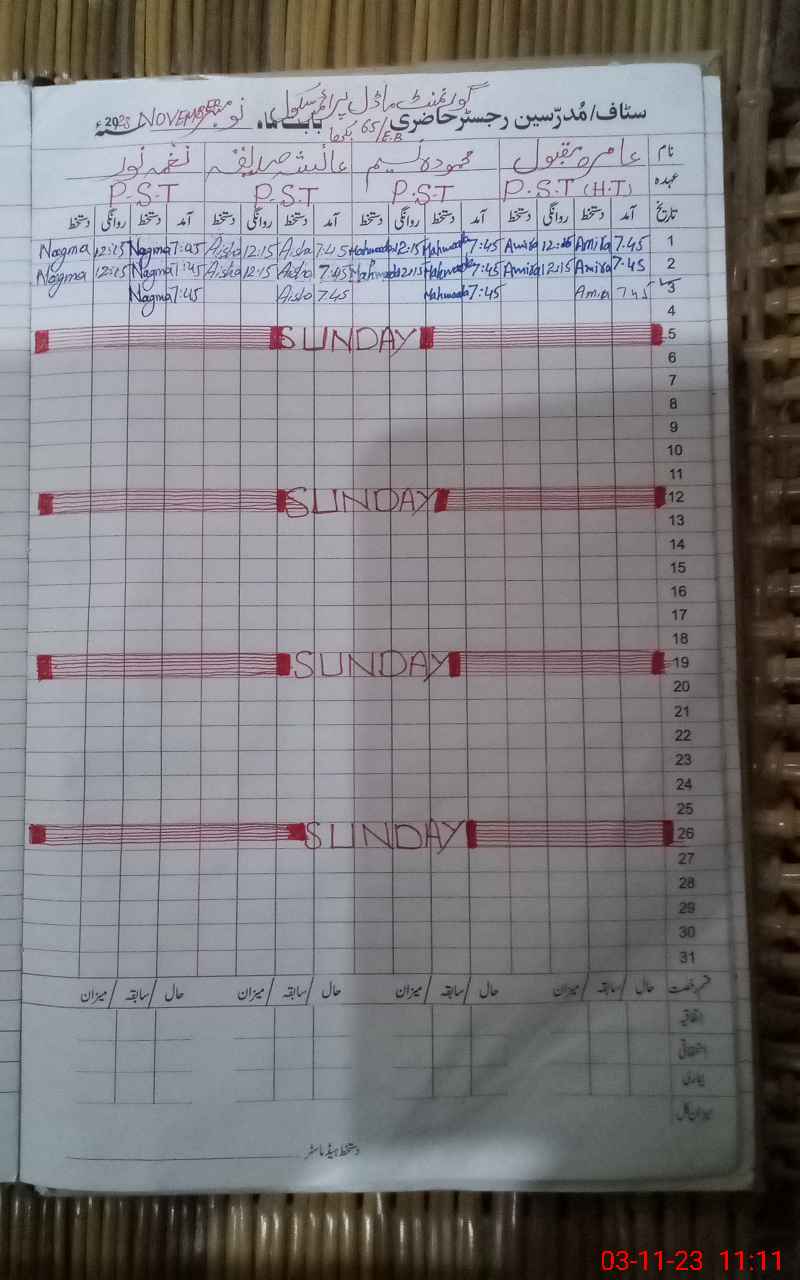 گورنمنٹ ماڈل پرائمری سکول
سٹاف/مُدرّسین رجسٹر حاضری 65/E.B بابت ماہ نومبر NOVEMBER 2023ء
نام عامرہ مقبول محمودہ نسیم عائشہ صدیقہ نغمہ نور
عہدہ P.S.T (H.T) P.S.T P.S.T P.S.T
تاریخ آمد دستخط روانگی دستخط آمد دستخط روانگی دستخط آمد دستخط روانگی دستخط آمد دستخط روانگی دستخط
1 7:45 Amira 12:15 Amira 7:45 Mahmooda 12:15 Mahmooda 7:45 Aisha 12:15 Aisha 7:45 Nagma 12:15 Nagma
2 7:45 Amira 12:15 Amira 7:45 Mahmooda 12:15 Mahmooda 7:45 Aisha 12:15 Aisha 7:45 Nagma 12:15 Nagma
3 7:45 Amira 7:45 Mahmooda 7:45 Aisha 7:45 Nagma
4
5 SUNDAY
6
7
8
9
10
11
12 SUNDAY
13
14
15
16
17
18
19 SUNDAY
20
21
22
23
24
25
26 SUNDAY
27
28
29
30
31
قسم رخصت حال / سابقہ / میزان حال / سابقہ / میزان حال / سابقہ / میزان حال / سابقہ / میزان
اتفاقیہ
استحقاقی
بیماری
میزان کل
دستخط ہیڈ ماسٹر
03-11-23 11:11